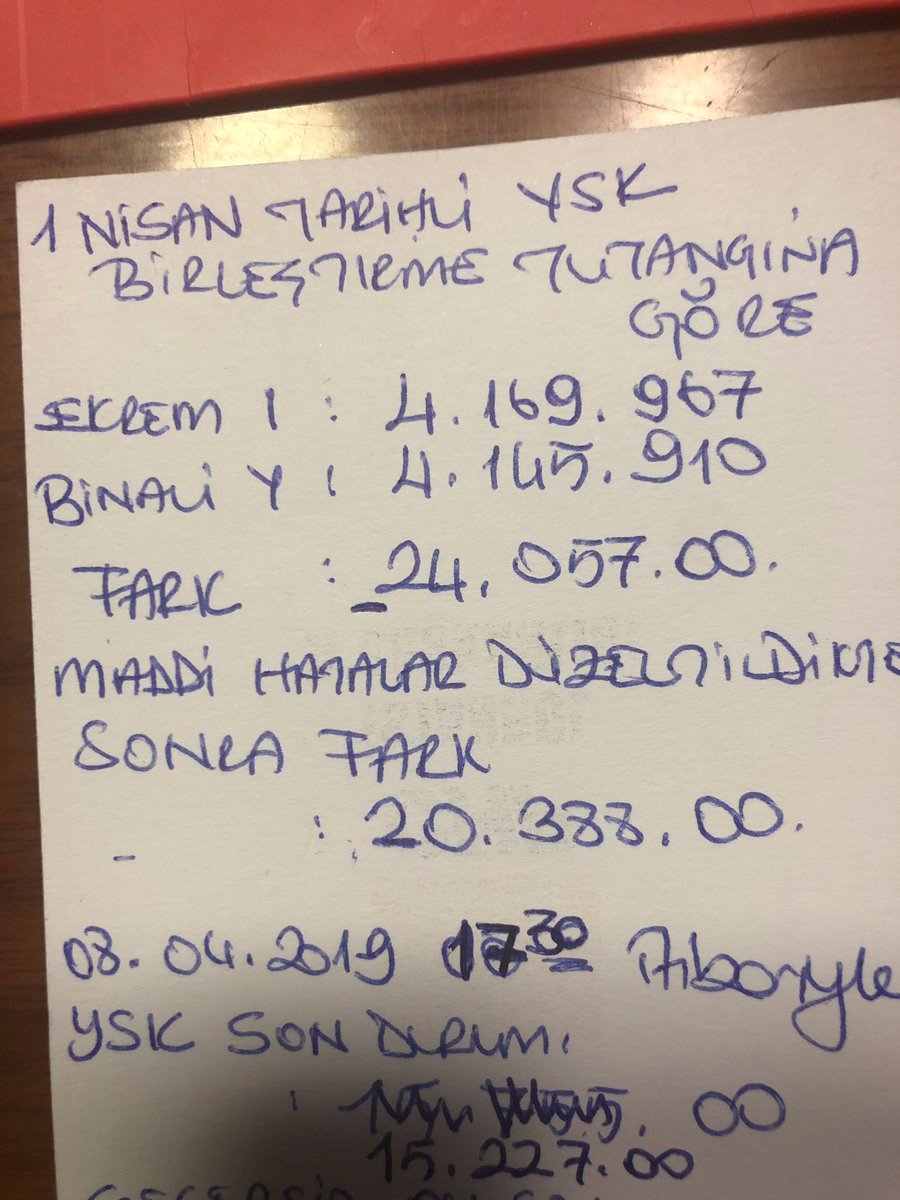 1 NİSAN TARİHLİ YSK
BİRLEŞTİRME TUTANGINA
GÖRE
EKREM I : 4.169.967
BİNALİ Y : 4.145.910
FARK : 24.057.00.
MADDİ HATALAR DÜZELTİLDİKTE
SONRA FARK
: 20.388.00.
08.04.2019 17 30 İtibarıyle
YSK SON DURUM.
: 00
15.227.00